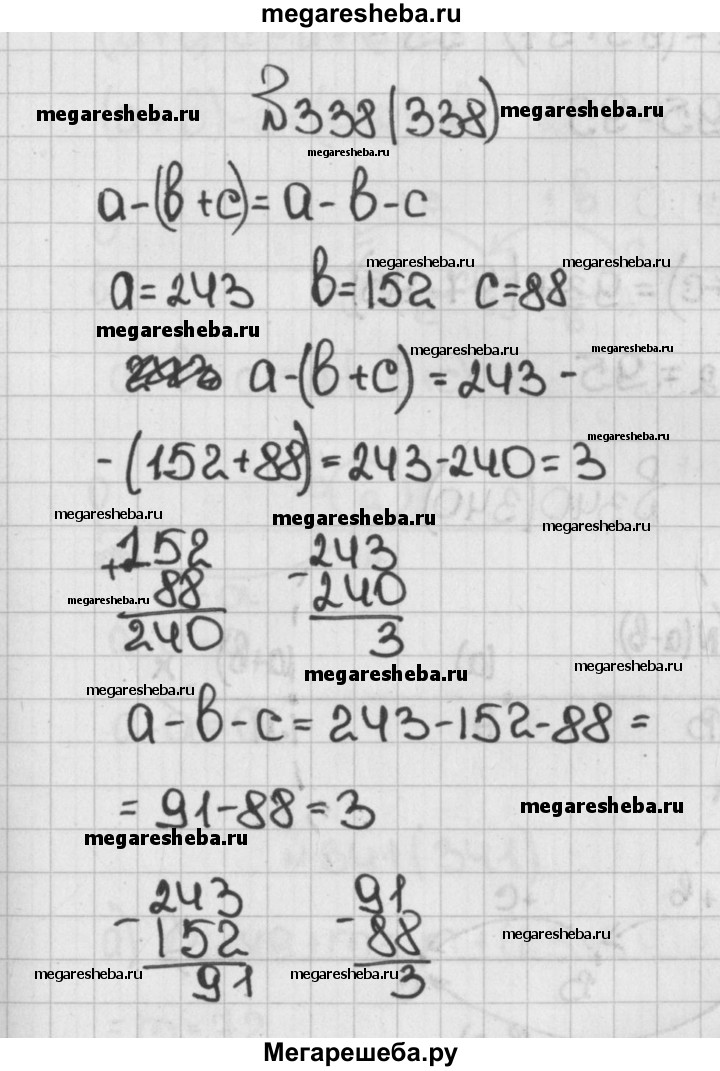 megaresheba.ru
megaresheba.ru №338(338) megaresheba.ru
megaresheba.ru
a-(в+c)= a-в-c
megaresheba.ru megaresheba.ru
a=243 в=152 c=88
megaresheba.ru megaresheba.ru megaresheba.ru
a-(в+c)=243-
megaresheba.ru
-(152+88)=243-240=3
megaresheba.ru megaresheba.ru megaresheba.ru
+152 243
megaresheba.ru 88 -240
240 3
megaresheba.ru megaresheba.ru
megaresheba.ru
a-в-c=243-152-88=
=91-88=3 megaresheba.ru
megaresheba.ru
243 91
-152 -88 megaresheba.ru
megaresheba.ru 91 megaresheba.ru 3
Мегарешеба.ру